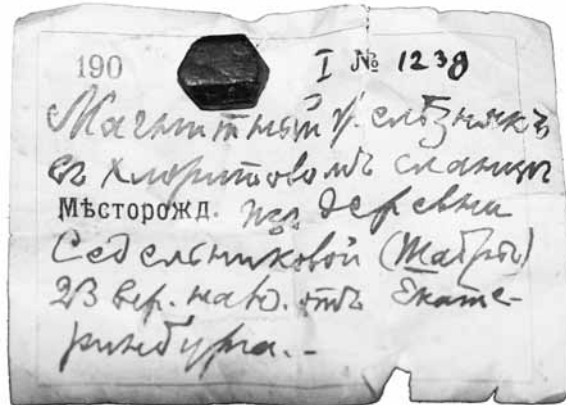 190 I № 1238
Магнитный желѣзнякъ
въ хлоритовомъ сланцѣ
Мѣсторожд. изъ деревни
Седельниковой (Шабры)
23 вер. на ю. отъ Екате-
ринбурга.-